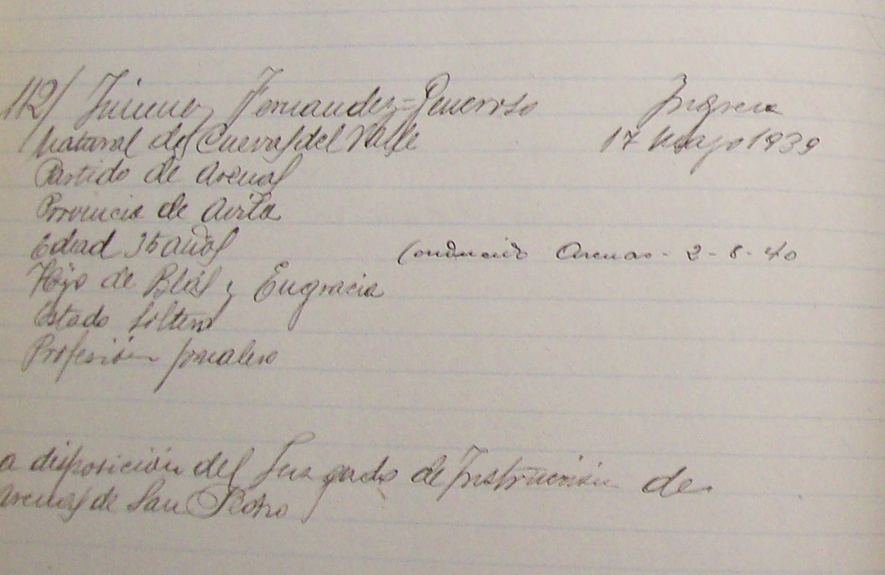 112/ Jimenez Fernandez=Generoso Ingresa
Natural de Cuevas del Valle 17 Mayo 1939
Partido de Arenas
Provincia de Avila
Edad 35 años Conducido Arenas - 2-8-40
Hijo de Blas y Engracia
Estado Soltero
Profesión jornalero
a disposición del Juzgado de Instrucción de
Arenas de San Pedro